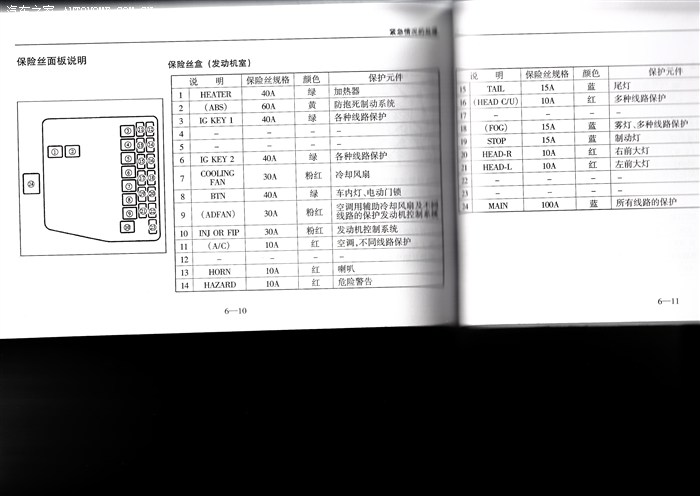 汽车之家
紧急情况的处理
保险丝面板说明
保险丝盒（发动机室）
说 明 保险丝规格 颜色 保护元件
1 HEATER 40A 绿 加热器
2 (ABS) 60A 黄 防抱死制动系统
3 IG KEY 1 40A 绿 各种线路保护
4 – – – –
5 – – – –
6 IG KEY 2 40A 绿 各种线路保护
7 COOLING FAN 30A 粉红 冷却风扇
8 BTN 40A 绿 车内灯、电动门锁
9 (ADFAN) 30A 粉红 空调用辅助冷却风扇及不同
线路的保护发动机控制系统
10 INJ OR FIP 30A 粉红 发动机控制系统
11 (A/C) 10A 红 空调，不同线路保护
12 – – – –
13 HORN 10A 红 喇叭
14 HAZARD 10A 红 危险警告
6—10
说 明 保险丝规格 颜色 保护元件
15 TAIL 15A 蓝 尾灯
16 (HEAD C/U) 10A 红 多种线路保护
17 – – – –
18 (FOG) 15A 蓝 雾灯、多种线路保护
19 STOP 15A 蓝 制动灯
20 HEAD-R 10A 红 右前大灯
21 HEAD-L 10A 红 左前大灯
22 – – – –
23 – – – –
24 MAIN 100A 蓝 所有线路的保护
6—11